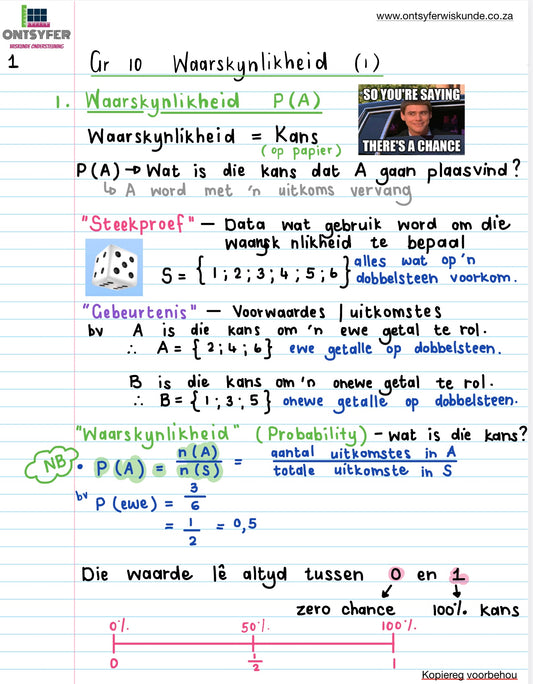 www.ontsyferwiskunde.co.za
ONTSYFER
WISKUNDE ONDERSTEUNING
1
Gr 10 Waarskynlikheid (1)
1. Waarskynlikheid P(A)
SO YOU'RE SAYING
THERE'S A CHANCE
Waarskynlikheid = Kans
(op papier)
P(A) → Wat is die kans dat A gaan plaasvind?
↳ A word met 'n uitkoms vervang
"Steekproef" – Data wat gebruik word om die
waarsk nlikheid te bepaal
S = { 1 ; 2 ; 3 ; 4 ; 5 ; 6 } alles wat op 'n
dobbelsteen voorkom.
"Gebeurtenis" – Voorwaardes / uitkomstes
bv A is die kans om 'n ewe getal te rol.
∴ A = { 2 ; 4 ; 6 } ewe getalle op dobbelsteen.
B is die kans om 'n onewe getal te rol.
∴ B = { 1 ; 3 ; 5 } onewe getalle op dobbelsteen.
"Waarskynlikheid" (Probability) – wat is die kans?
NB • P(A) = n(A)/n(S) = aantal uitkomstes in A / totale uitkomste in S
bv P(ewe) = 3/6
= 1/2 = 0,5
Die waarde lê altyd tussen 0 en 1
zero chance 100% kans
0% 50% 100%
0 1/2 1
Kopiereg voorbehou